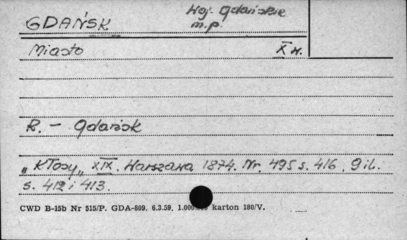 GDAŃSK
Woj. Gdańskie
m.p.
Miasto X w.
R. - Gdańsk
"Kłosy" XIX. Warszawa 1874. Nr. 495 s. 416, 9 il.
s. 412 i 413.
CWD B-15b Nr 515/P. GDA-809. 6.3.59. karton 180/V.